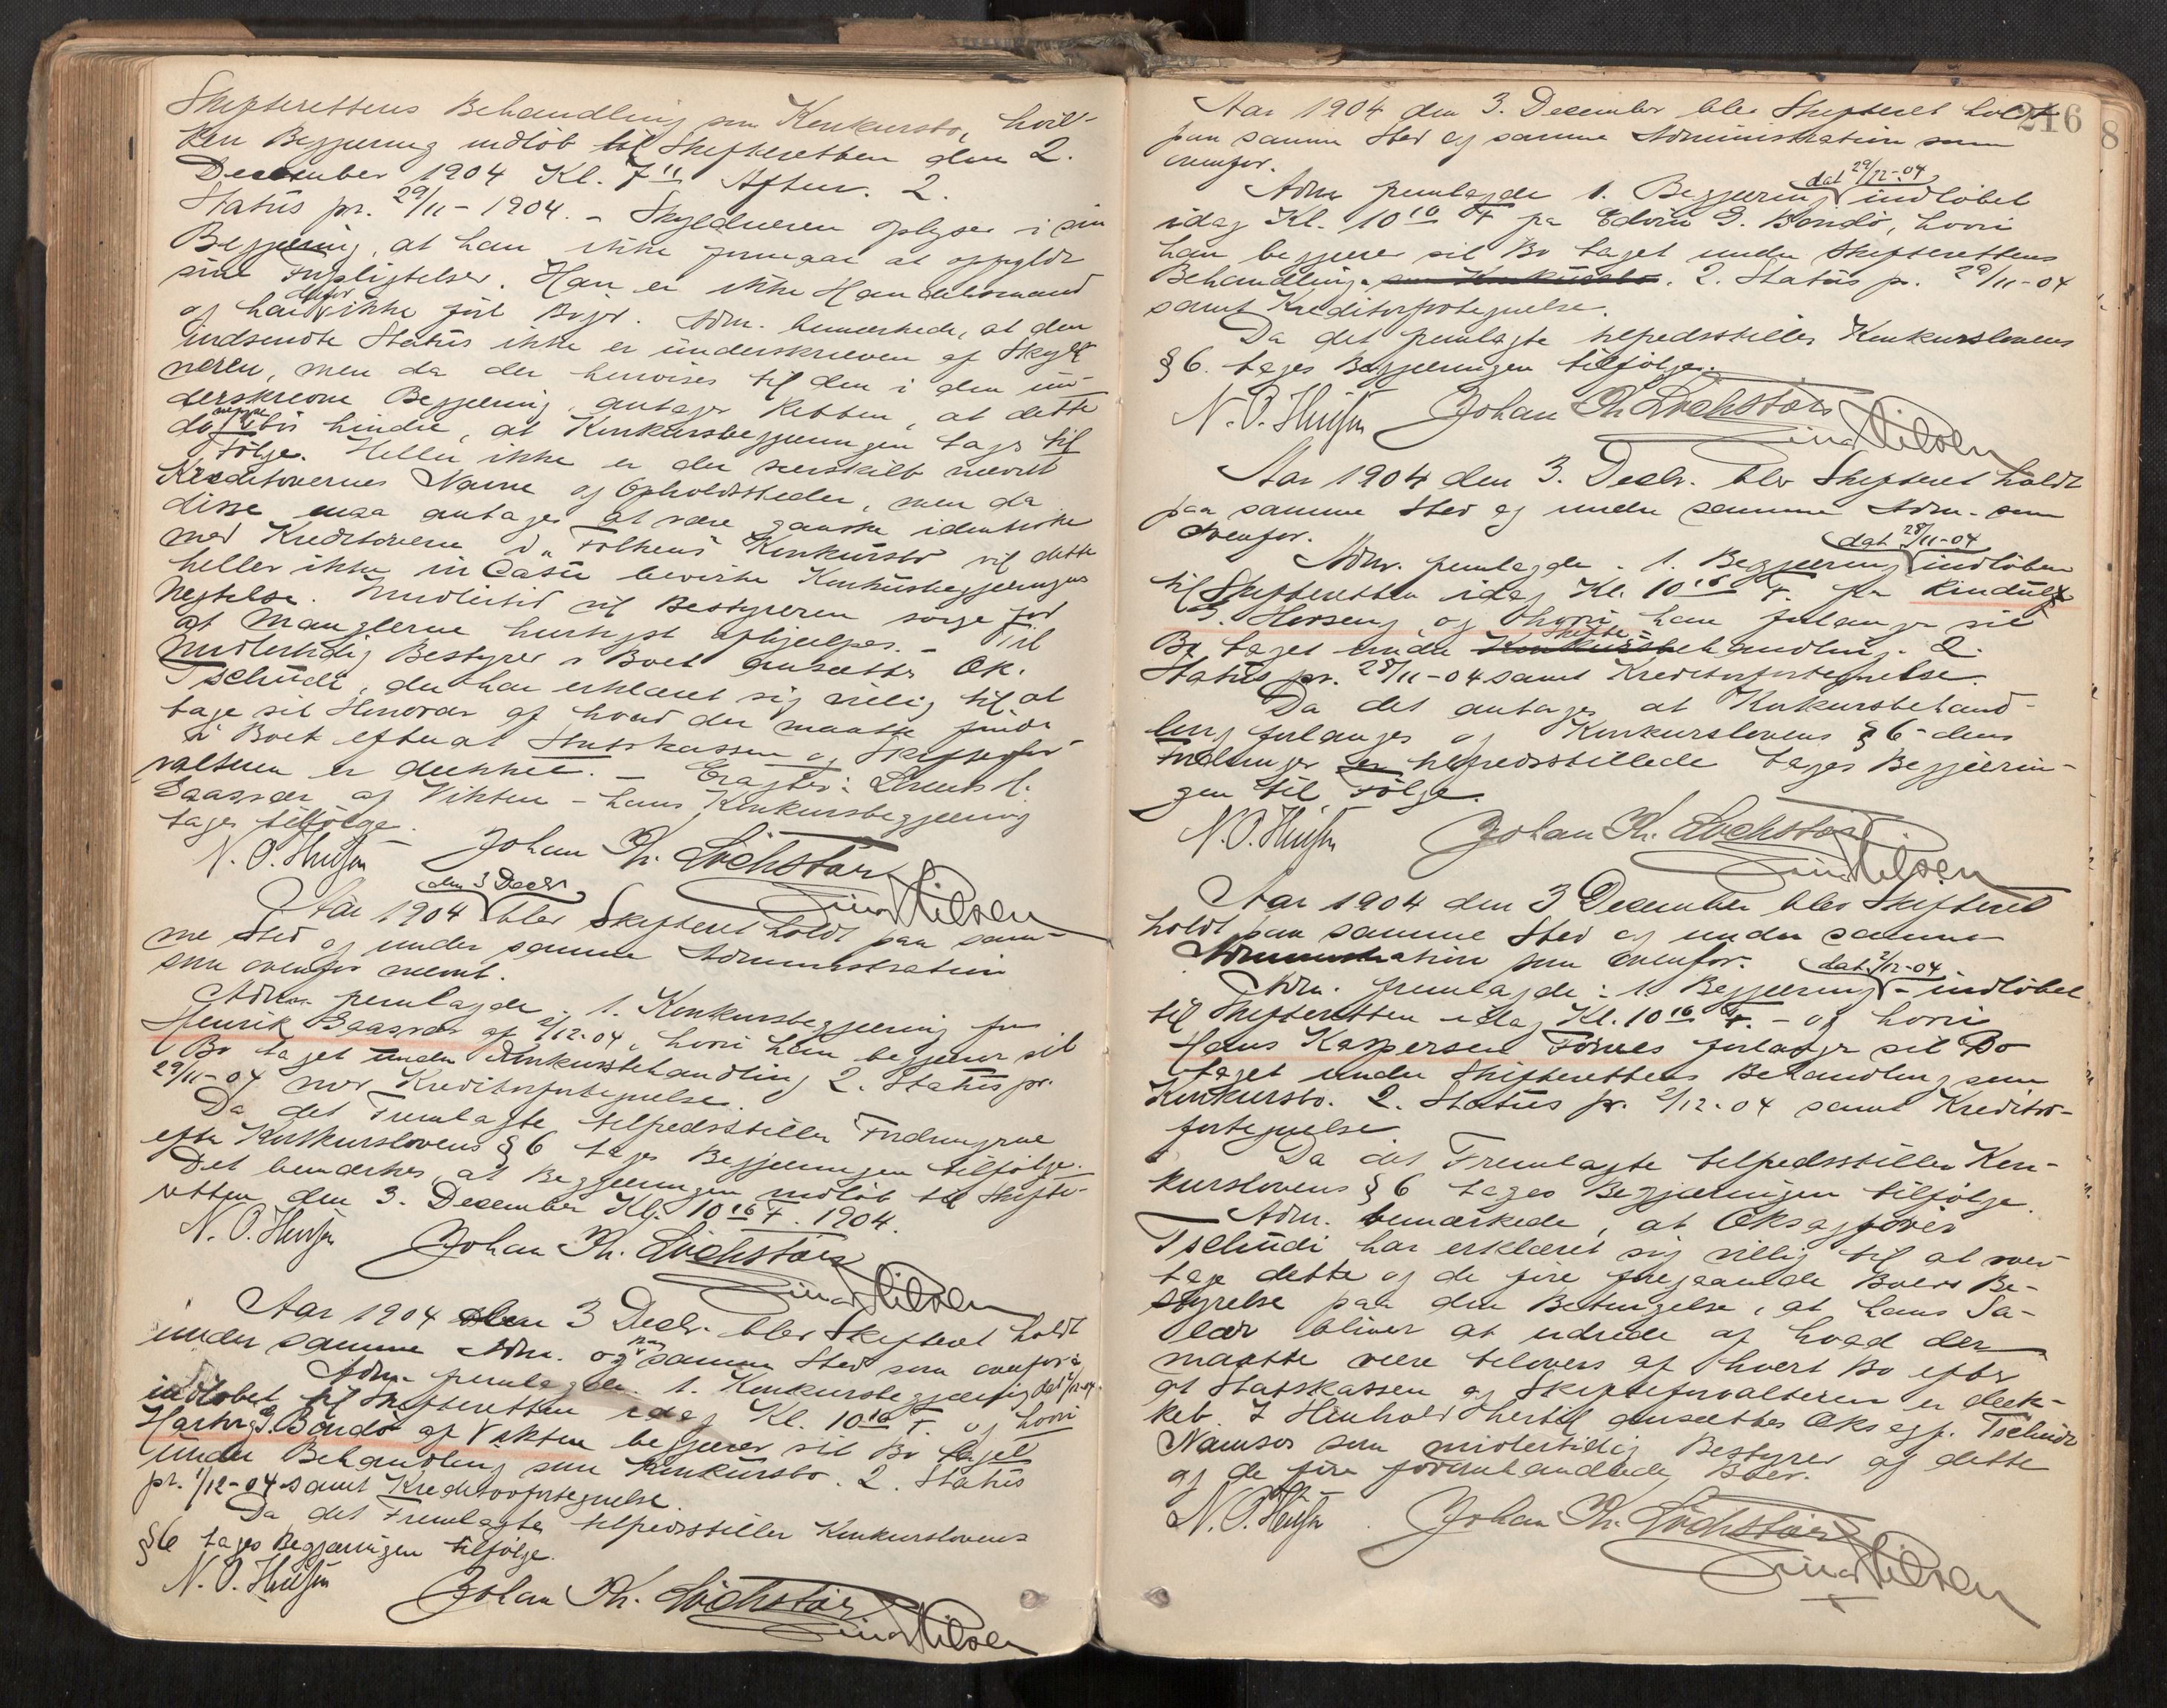 Skifterettens Behandling som Konkursbo, hvil-
ken Begjæring indløb til Skifteretten den 2.
December 1904 Kl. 7 Efterm. 2.
Status pr. 29/11-1904. – Skyldneren oplyser i sin
Begjæring, at han ikke formaar at opfylde
sine Forpligtelser. Han er ikke Handelsmand
og har derfor ikke ført Bøger. Adm. bemærkede, at den
indsendte Status ikke er underskreven af Skyld-
neren, men da der henvises til den i den un-
derskrevne Begjæring, antager Retten, at dette
ikke bør hindre, at Konkursbegjæringen tages til
Følge. Heller ikke er der særskilt nævnt
Kreditorernes Navne og Opholdssteder, men da
disse maa antages at være ganske identiske
med Kreditorerne i „Folkens" Konkursbo vil dette
heller ikke in Casu bevirke Konkursbegjæringens
Negtelse. Imidlertid vil Bestyreren sørge for
at Manglerne hurtigst afhjælpes. – Til
midlertidig Bestyrer i Boet ansættes Ok.
Tschudi, der har erklæret sig villig til at
tage sit Honorar af hvad der maatte findes
i Boet efterat Statskassen og Skiftefor-
valteren er dækket. –
Gaasvær af Vikten – hans Konkursbegjæring
tages tilfølge.
N. O. Johan Kr. Löchstör
Einar Nilsen
Aar 1904 den 3 Decbr blev Skifteret holdt paa sam-
me Sted og under samme Administration
som ovenfor nævnt.
Adm. fremlagde: 1. Konkursbegjæring fra
Henrik Gaasvær af 2/12-04, hvori han begjærer sit
Bo taget under Konkursbehandling 2. Status pr.
29/11-04 med Kreditorfortegnelse.
Da det Fremlagte tilfredsstiller Fordringerne
efter Konkurslovens § 6 tages Begjæringen tilfølge.
Det bemærkes, at Begjæringen indløb til Skifte-
retten den 3. December Kl. 10 16 F. 1904.
N. O. Johan Kr. Löchstör
Einar Nilsen
Aar 1904 den 3 Decbr. blev Skifteret holdt
under samme Adm. og paa samme Sted som ovenfor.
Adm. fremlagde. 1. Konkursbegjæring dat 2/12-04
indløbet til Skifteretten idag Kl. 10 16 F. og hvori
Hartvig J. Bondø af Vikten begjærer sit Bo taget
under Behandling som Konkursbo. 2. Status
pr. 1/12-04 samt Kreditorfortegnelse.
Da det Fremlagte tilfredsstiller Konkurslovens
§ 6 tages Begjæringen tilfølge.
N. O. Johan Kr. Löchstör
Einar Nilsen
216
8
Aar 1904 den 3. December blev Skifteret holdt
paa samme Sted og samme Administration som
ovenfor.
Adm. fremlagde 1. Begjæring dat 29/12-04 indløbet
idag Kl. 10 16 F fra Edvin G. Bondø, hvori
han begjærer sit Bo taget under Skifterettens
Behandling. som Konkursbo. 2. Status pr. 29/11-04
samt Kreditorfortegnelse.
Da det fremlagte tilfredsstiller Konkurslovens
§ 6. tages Begjæringen tilfølge.
N. O. Johan Kr. Löchstör
Einar Nilsen
Aar 1904 den 3. Decbr. blev Skifteret holdt
paa samme Sted og under samme Adm. som
ovenfor.
Adm. fremlagde. 1. Begjæring dat 28/11-04 indløben
til Skifteretten idag Kl. 10 16 F. fra Rindulf
Horseng og hvori han forlanger sit
Bo taget under Skifte-behandling. 2.
Status pr. 28/11-04 samt Kreditorfortegnelse.
Da det antages at Konkursbehand-
ling forlanges og Konkurslovens § 6-dens
Fordringer er tilfredsstillede tages Begjærin-
gen til Følge.
N. O. Johan Kr. Löchstör
Einar Nilsen
Aar 1904 den 3 December blev Skifteret
holdt paa samme Sted og under samme
Administration som ovenfor.
Adm. fremlagde: 1. Begjæring dat. 2/12-04 – indløbet
til Skifteretten idag Kl. 10 16 F. – og hvori
Hans Kaspersen Fornes forlanger sit Bo
taget under Skifterettens Behandling som
Konkursbo. 2. Status pr. 2/12-04 samt Kreditor-
fortegnelse.
Da det Fremlagte tilfredsstiller Kon-
kurslovens § 6 tages Begjæringen tilfølge.
Adm. bemærkede, at Oksagfører
Tschudi har erklæret sig villig til at over-
tage dette og de fire foregaaende Boers Be-
styrelse paa den Betingelse, at hans Sa-
lær bliver at udrede af hvad der
maatte være tilovers af hvert Bo efter
at Statskassen og Skifteforvalteren er dæk-
ket. I Henhold hertil ansættes Oksagf. Tschudi
Namsos som midlertidig Bestyrer af dette
og de fire forannhandlede Boer.
N. O. Johan Kr. Löchstör
Einar Nilsen